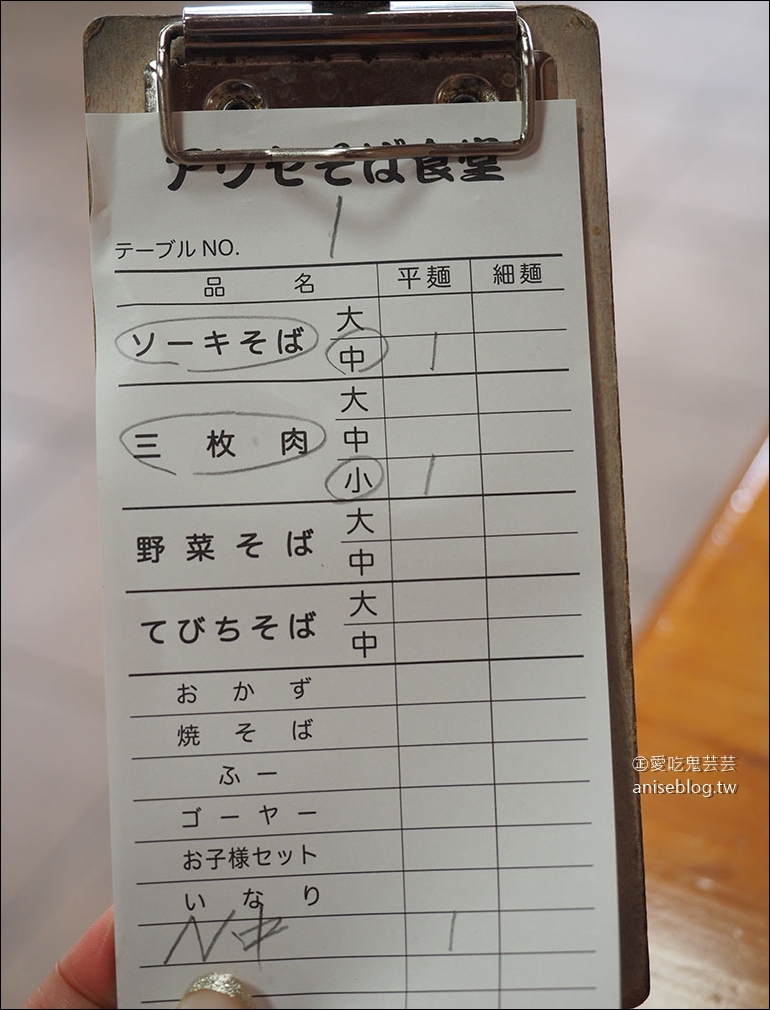 アワセそば食堂
テーブル NO. 1
品 名 平麺 細麺
ソーキそば 大
中 1
三枚肉 大
中
小 1
野菜そば 大
中
てびちそば 大
中
おかず
焼そば
ふー
ゴーヤー
お子様セット
いなり
N中 1
㊣愛吃鬼芸芸
aniseblog.tw